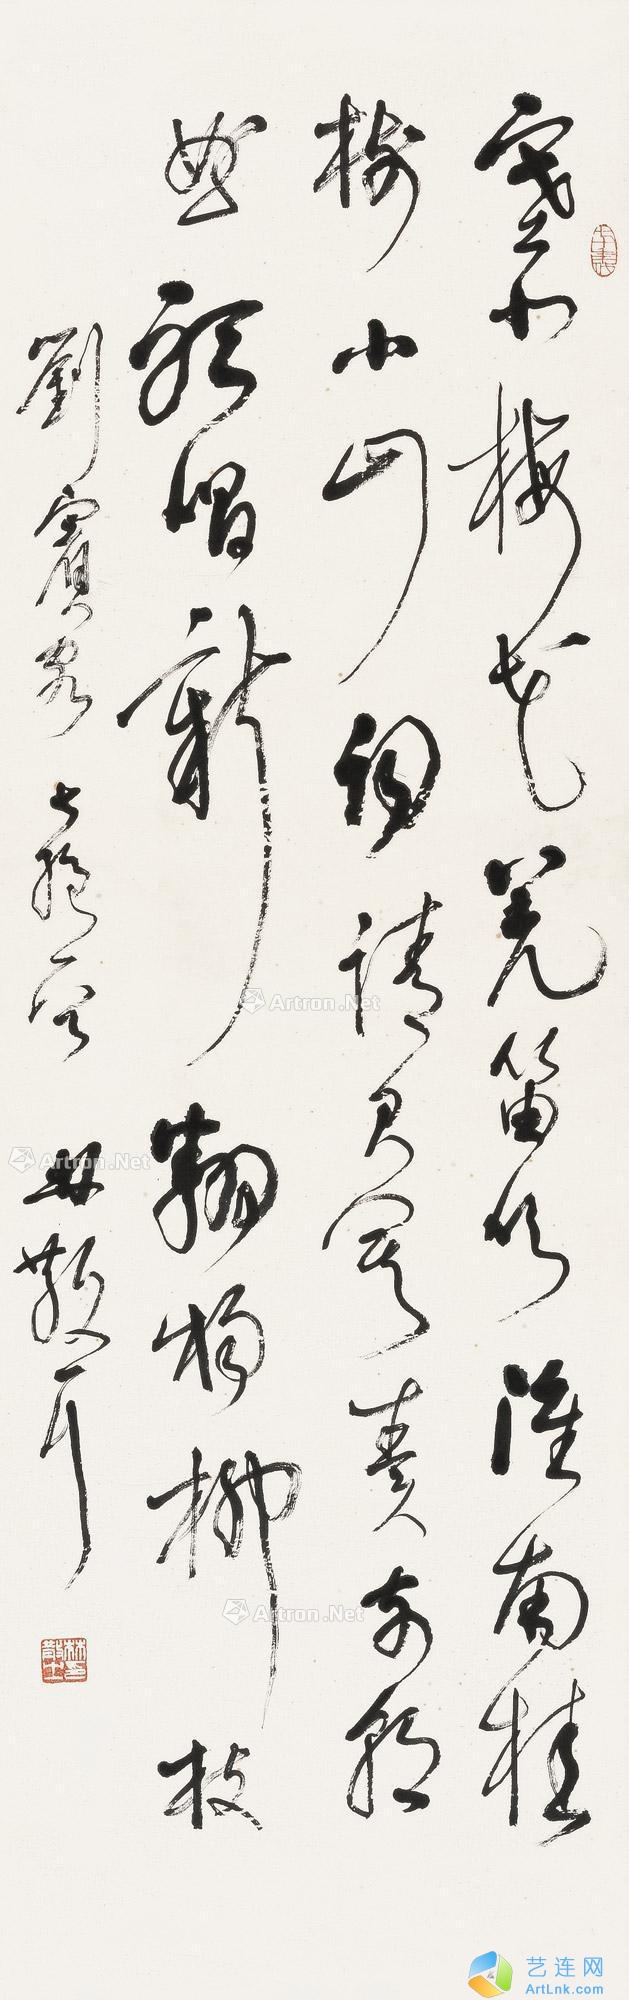 塞北梅花羌笛吹淮南桂
樹小山詞請君莫奏前朝
曲聽唱新翻楊柳枝
劉賓客七絕一首 林散耳
林散之印
Artron.Net
Artron.Net
Artron.Net
艺连网
ArtLnk.com